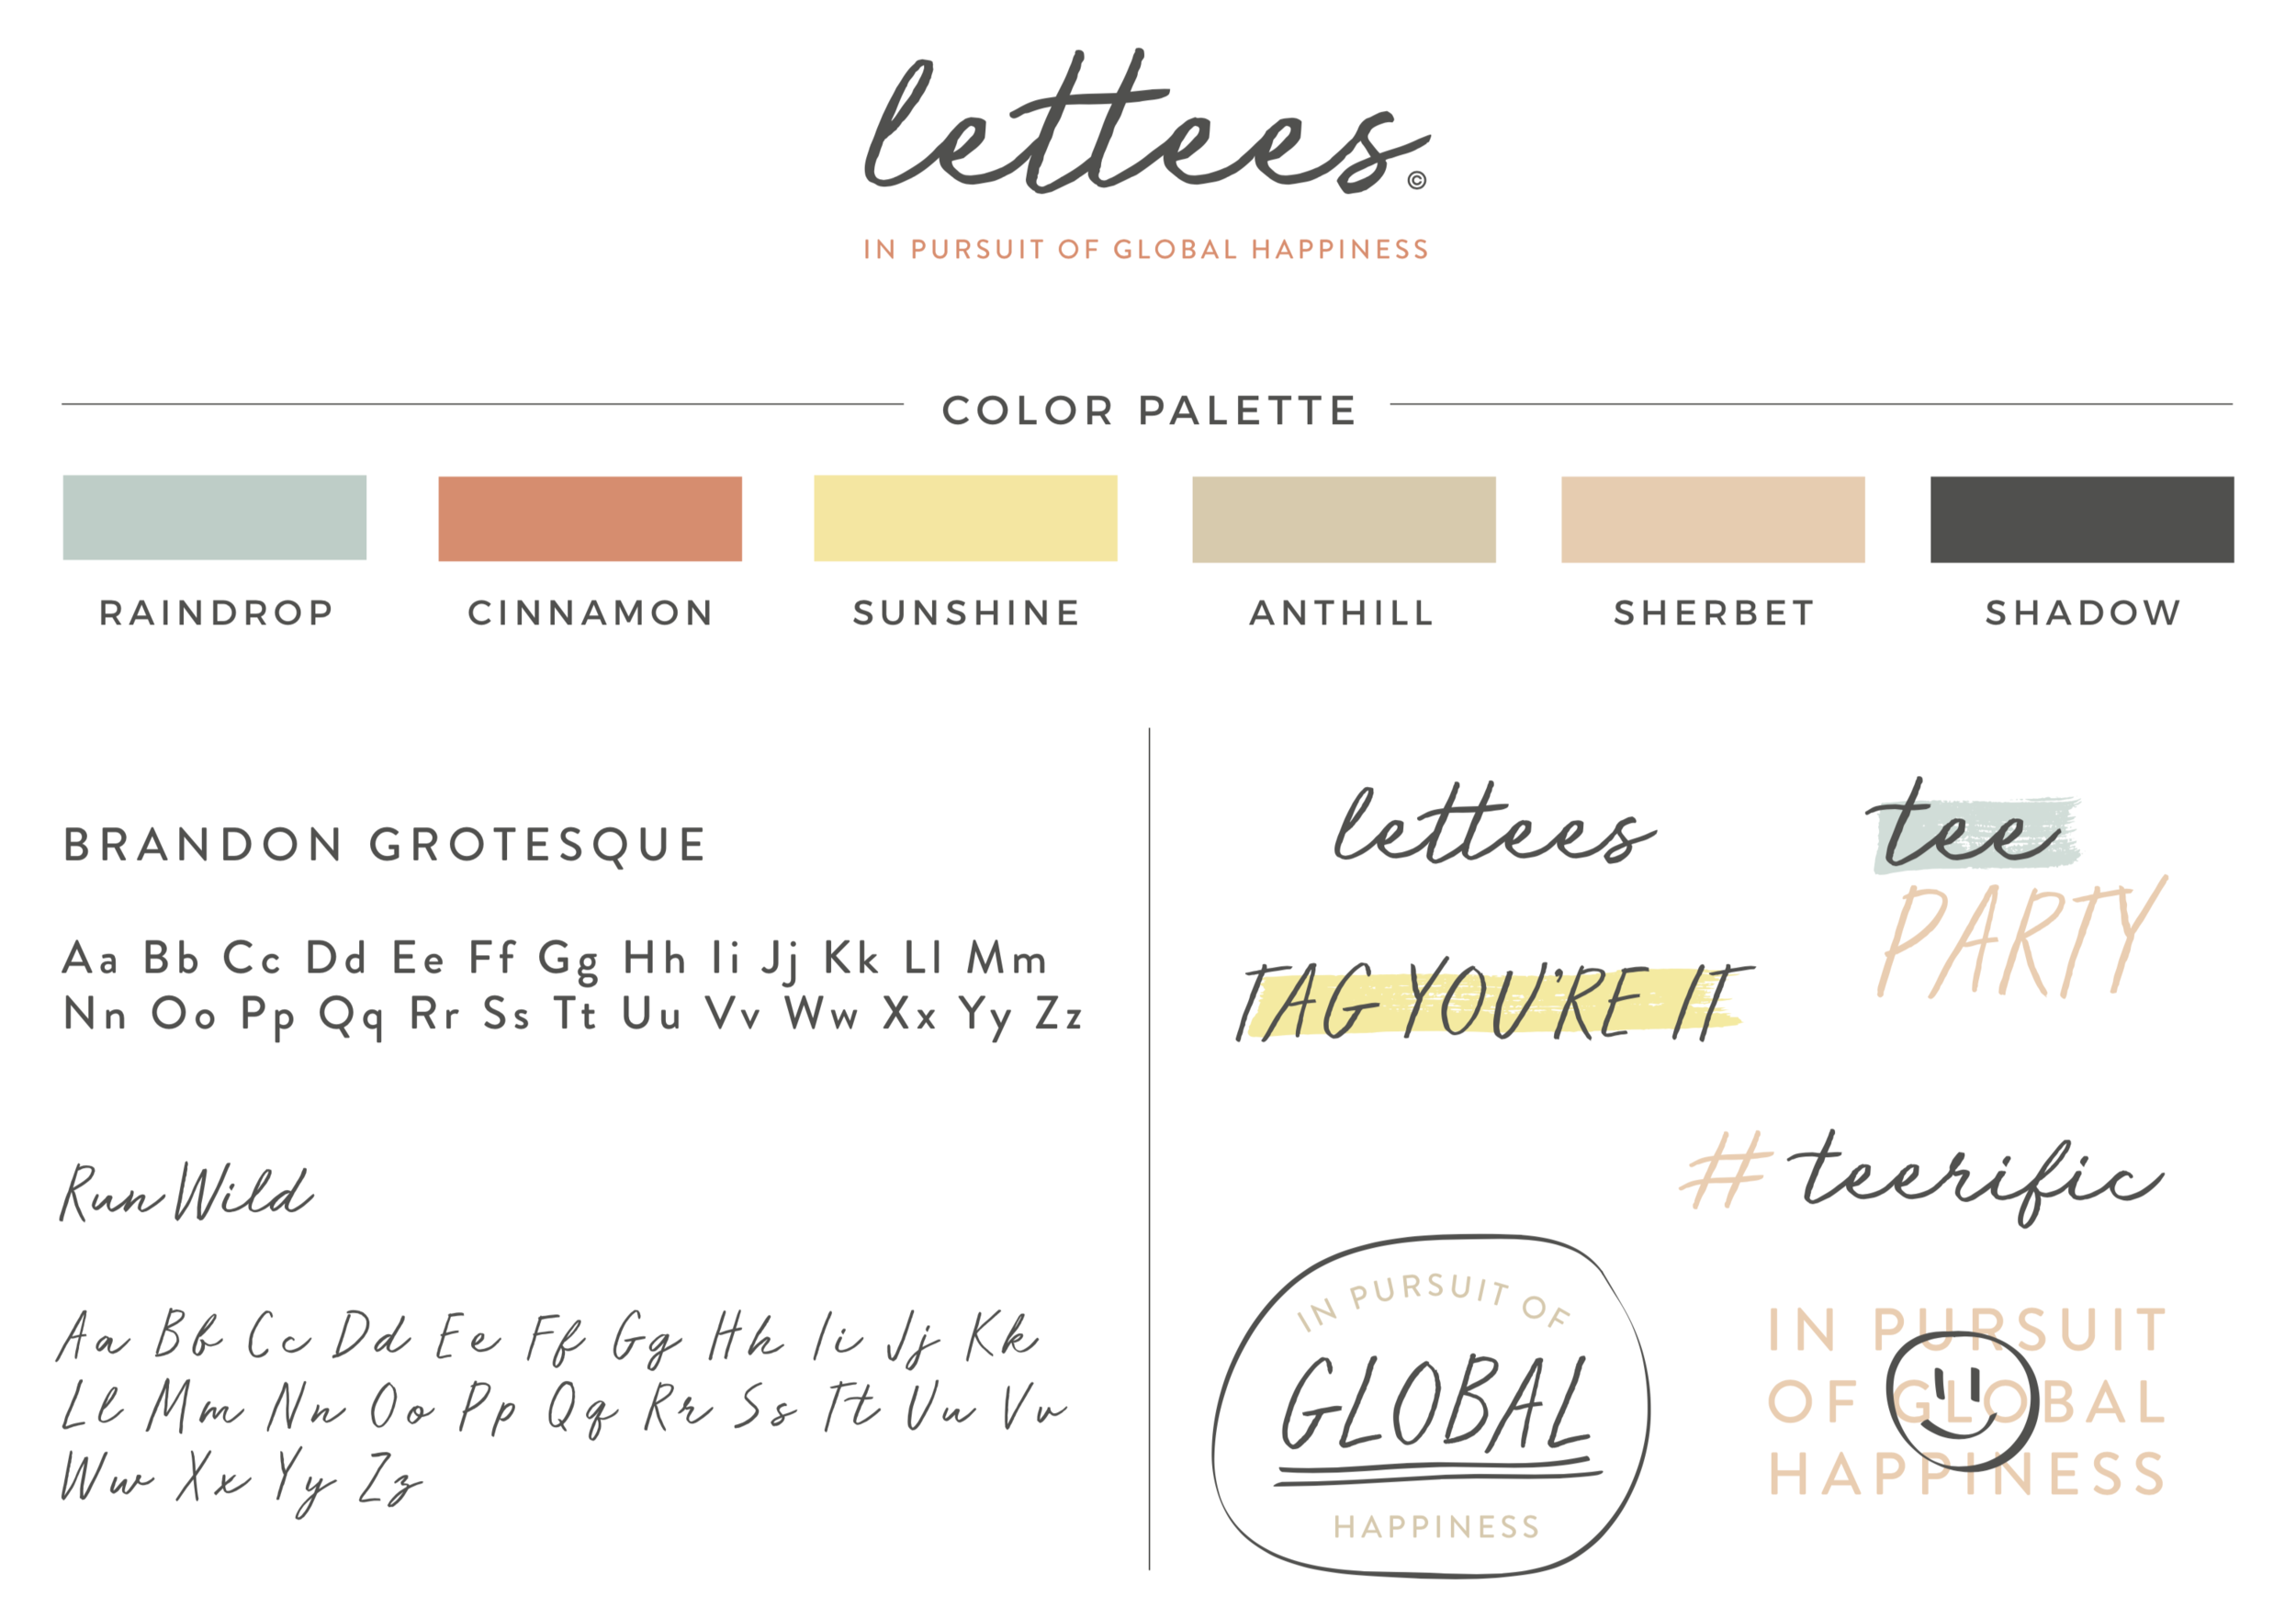 lettees©
IN PURSUIT OF GLOBAL HAPPINESS
COLOR PALETTE
RAINDROP
CINNAMON
SUNSHINE
ANTHILL
SHERBET
SHADOW
BRANDON GROTESQUE
Aa Bb Cc Dd Ee Ff Gg Hh Ii Jj Kk Ll Mm
Nn Oo Pp Qq Rr Ss Tt Uu Vv Ww Xx Yy Zz
Run Wild
Aa Bb Cc Dd Ee Ff Gg Hh Ii Jj Kk
Ll Mm Nn Oo Pp Qq Rr Ss Tt Uu Vv
Ww Xx Yy Zz
lettees
tee
PARTY
TAG YOU'RE IT
#teerific
IN PURSUIT OF
GLOBAL
HAPPINESS
IN PURSUIT
OF GLOBAL
HAPPINESS